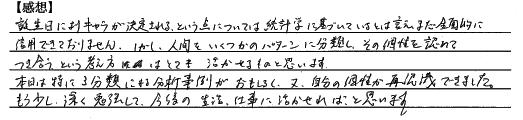 【感想】
誕生日によりキャラが決定される、という点については統計学に基づいているとは言え、まだ全面的に
信用できておりません。しかし、人間をいくつかのパターンに分類し、その個性を認めて
つき合う、という考え方はとても活かせるものと思います。
本日は特に3分類による分析事例がおもしろく、又、自分の個性が再認識できました。
もう少し、深く勉強して、今後の生活、仕事に活かせれば、と思います